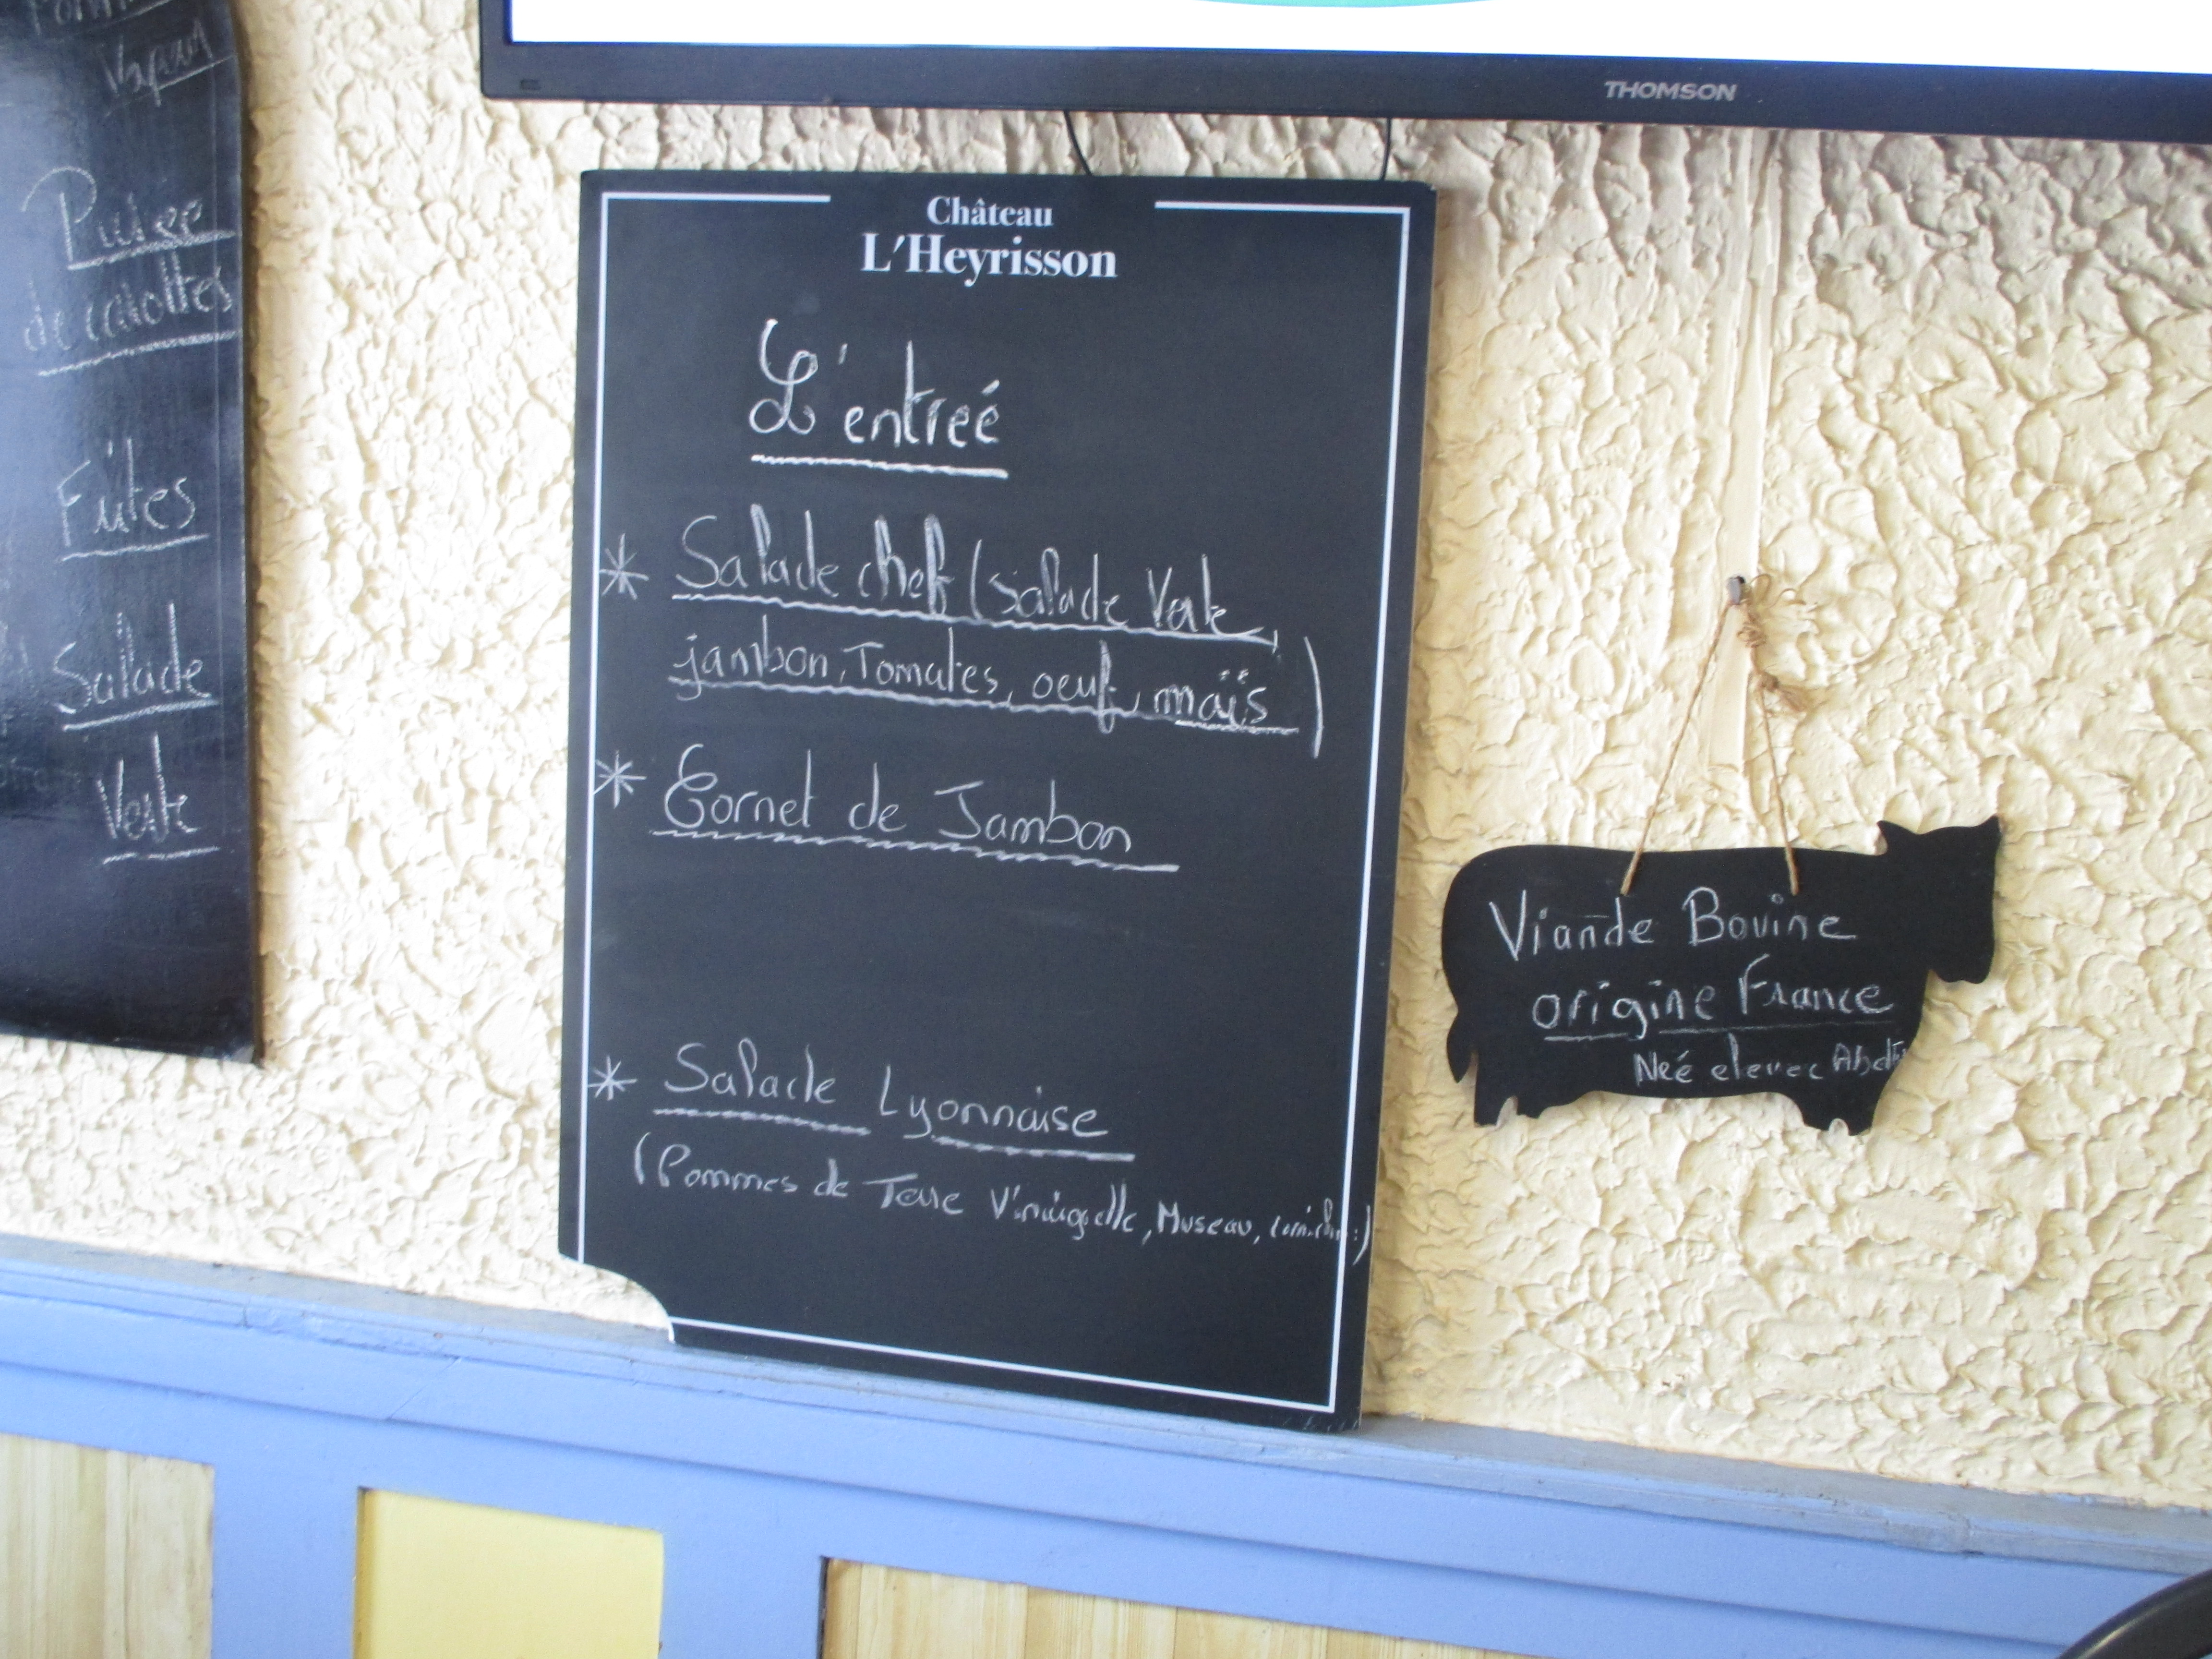 Vapeur
Purée
de carottes
Frites
Salade
Verte
THOMSON
Château
L'Heyrisson
L'entreé
* Salade chef (salade Verte,
jambon, Tomates, oeuf, maïs)
* Cornet de Jambon
* Salade Lyonnaise
(Pommes de Terre Vinaigrette, Museau, cornichons)
Viande Bovine
origine France
Neé elevee